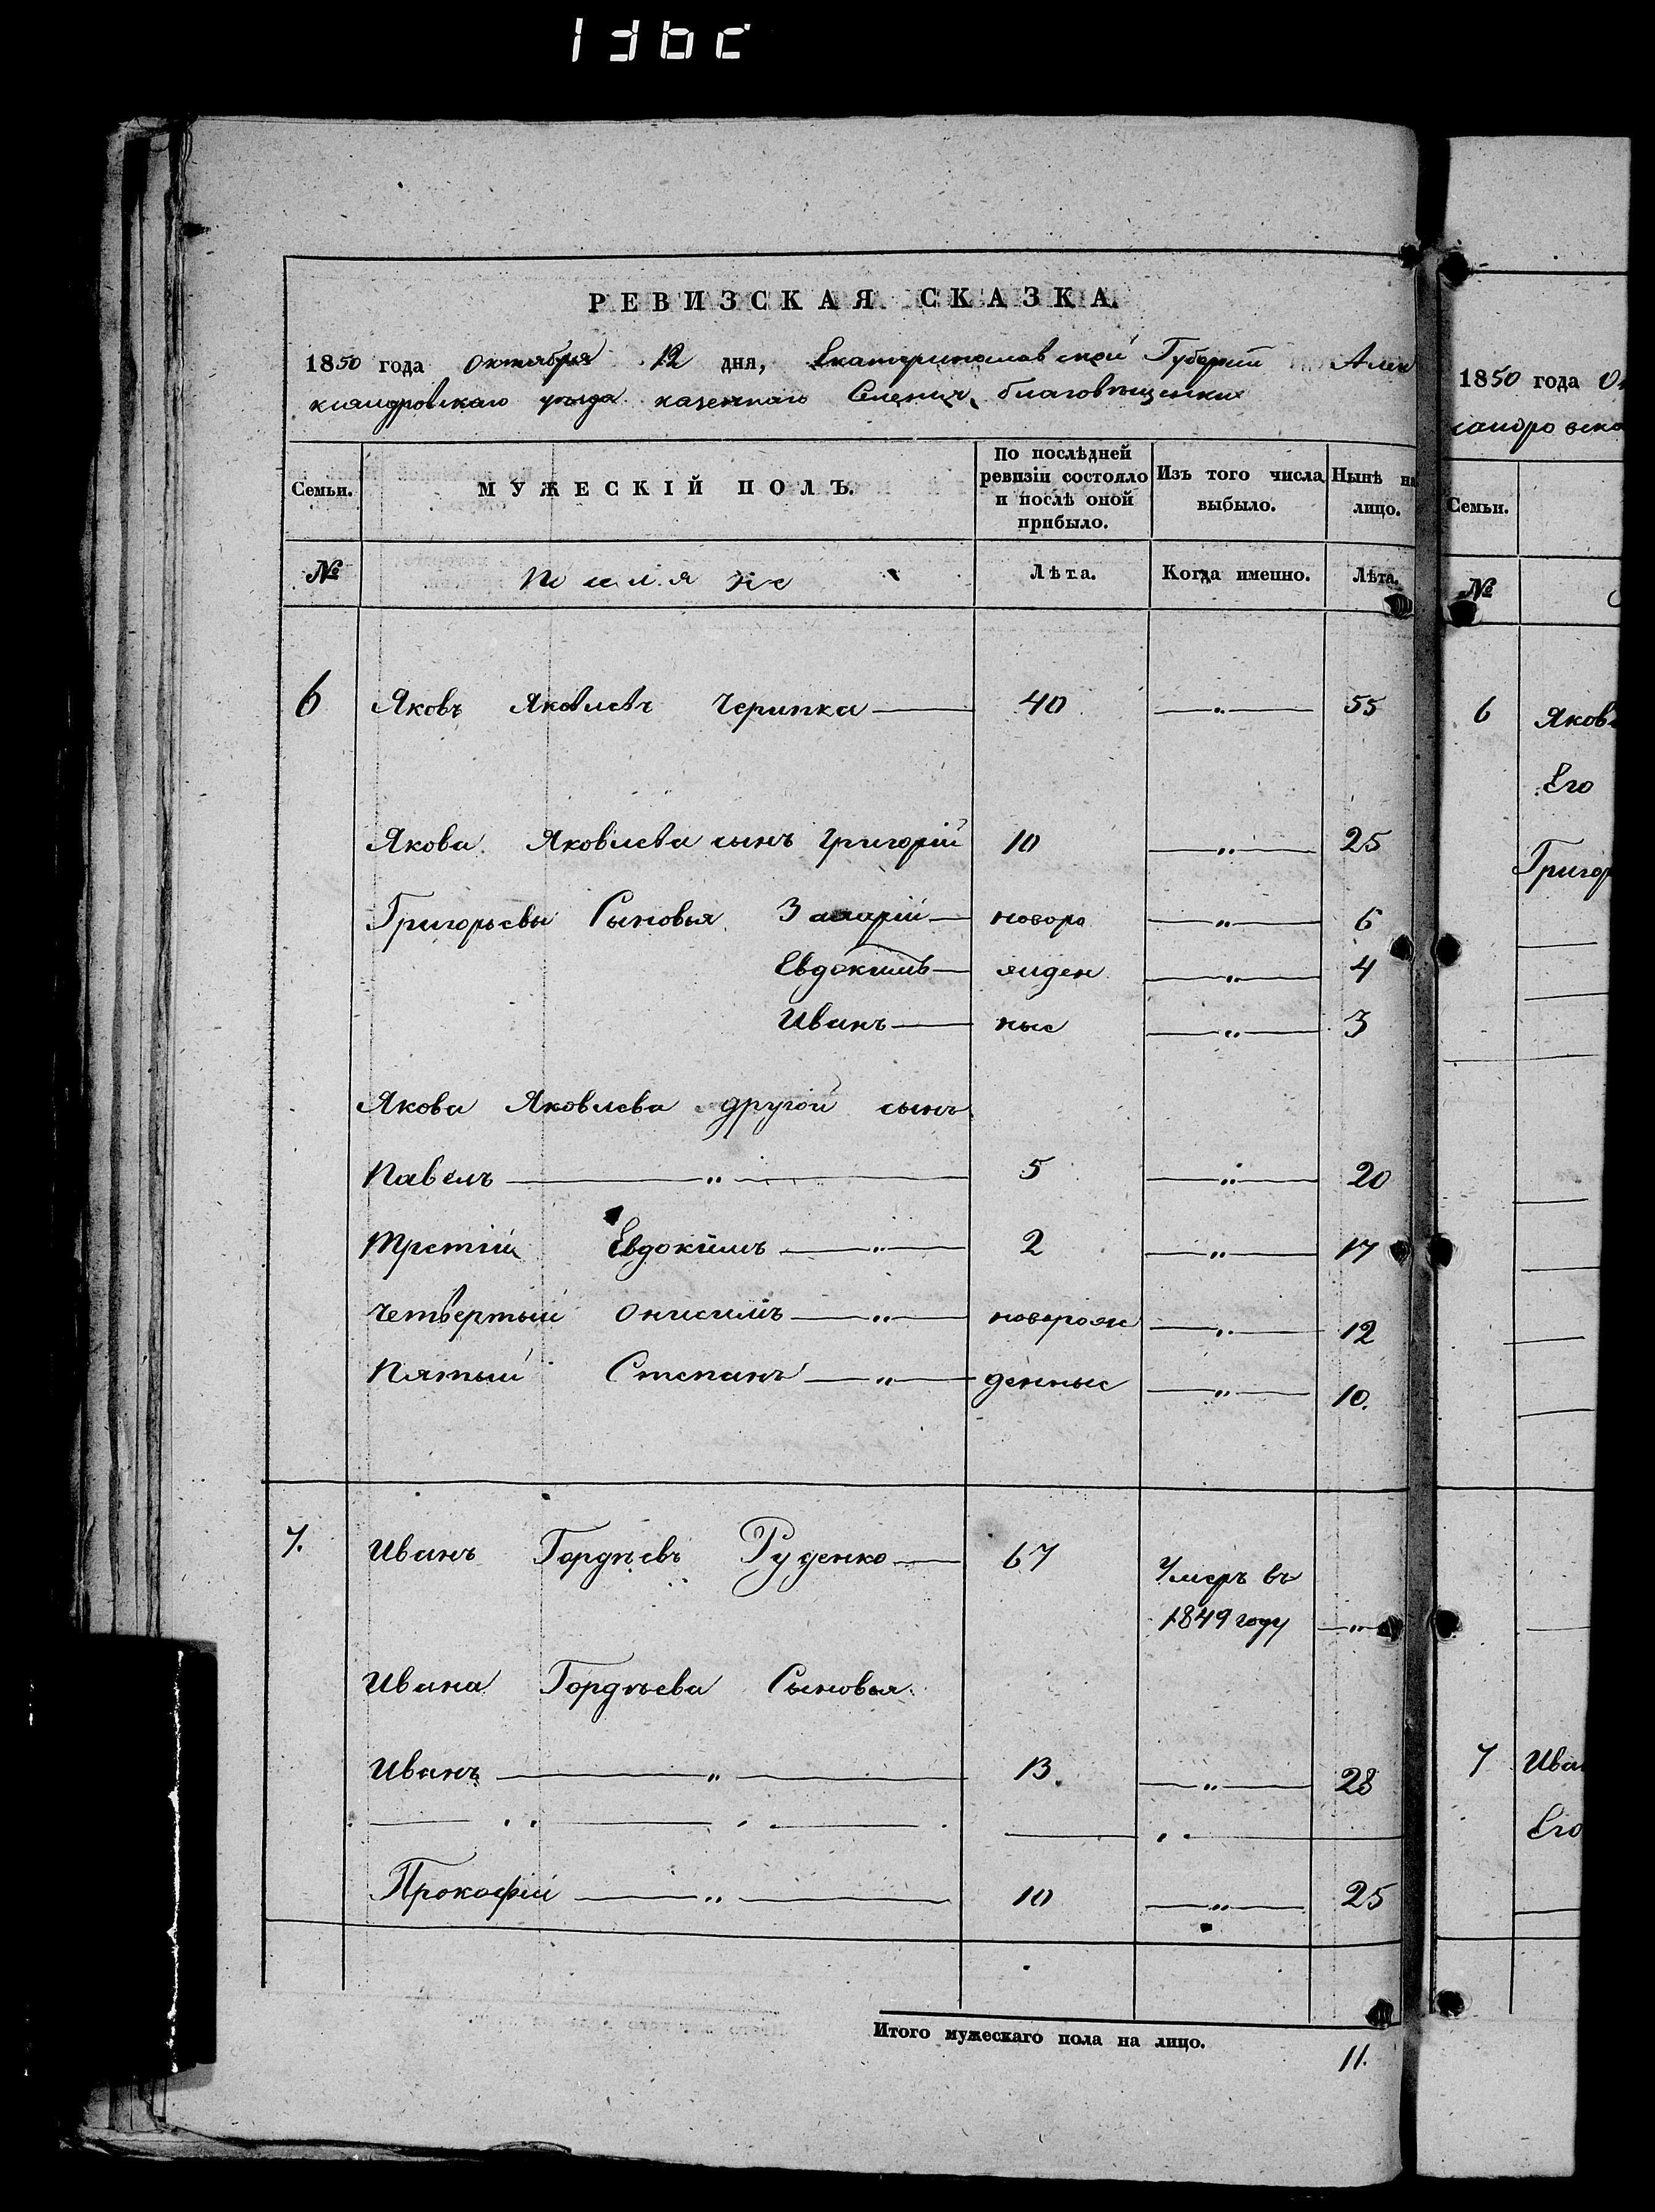 РЕВИЗСКАЯ СКАЗКА.
1850 года Октября 12 дня, Екатеринославской Губерніи Алек
сандровскаго уѣзда казеннаго Селенія благовѣщенки
Семьи. МУЖЕСКІЙ ПОЛЪ. По послѣдней ревизіи состояло и послѣ оной прибыло. Изъ того числа выбыло. Нынѣ на лицо.
№ Лѣта. Когда именно. Лѣта.
6 Яковъ Яковлевъ Черипка 40 — „ — 55
Якова Яковлева сынъ Григорій 10 — „ — 25
Григорьевы Сыновья Захарій новоро — „ — 6
Евдокимъ жден — „ — 4
Иванъ ные — „ — 3
Якова Яковлева другой сынъ
Павелъ — „ — 5 — „ — 20
Третій Евдокимъ — „ — 2 — „ — 17
Четвертый Онисимъ — „ — новорож — „ — 12
Пятый Степанъ — „ — денные — „ — 10.
7. Иванъ Гордѣевъ Руденко 67 Умеръ въ
1849 году — „ —
Ивана Гордѣева Сыновья
Иванъ — „ — 13. — „ — 28
Прокофій — „ — 10 — „ — 25
Итого мужескаго пола на лицо.
11.
1850 года О
сандровска
Семьи.
№
6 Яков
Его
Григор
7 Ива
Его